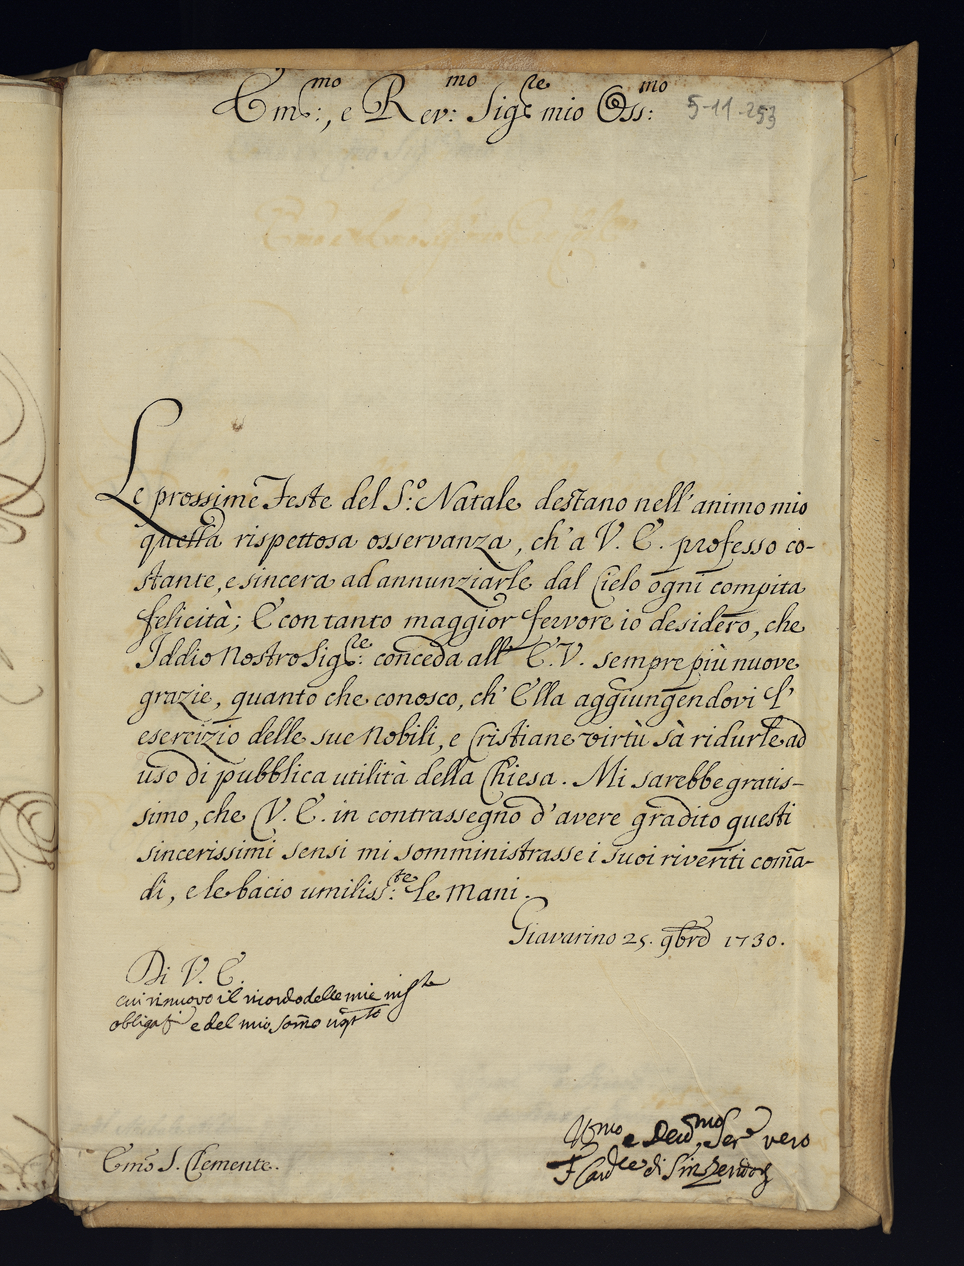 Em.mo:, e Rev:mo Sig:re mio Oss:mo
5-11-253
Le prossime Feste del S:o Natale destano nell' animo mio
quella rispettosa osservanza, ch' a V. E. professo co-
stante, e sincera ad annunziarle dal Cielo ogni compita
felicità; E con tanto maggior fervore io desidero, che
Iddio Nostro Sig:re conceda all' E. V. sempre più nuove
grazie, quanto che conosco, ch' Ella aggiungendovi l'
esercizio delle sue Nobili, e Cristiane virtù sà ridurle ad
uso di pubblica utilità della Chiesa. Mi sarebbe gratis-
simo, che V. E. in contrassegno d' avere gradito questi
sincerissimi sensi mi somministrasse i suoi riveriti com̃a-
di, e le bacio umiliss:te le Mani.
Giavarino 25. 9bre 1730.
Di V. E.
cui rinuovo il ricordo delle mie
e del mio som̃o
Em̃o S. Clemente.
e Devmo Sere vero
F Cardle di Sinzendorf